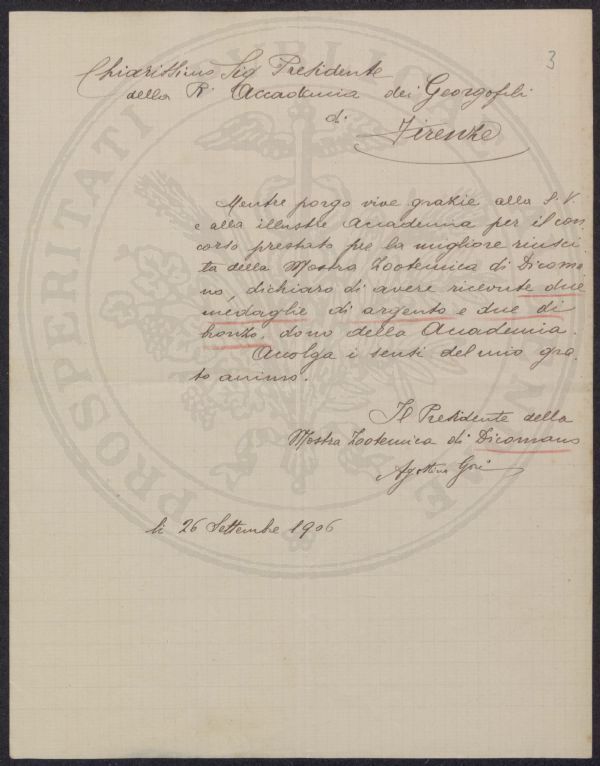 3
Chiarissimo Sig Presidente
della R. Accademia dei Georgofili
di
Firenze
Mentre porgo vive grazie alla S. V.
e alla illustre Accademia per il con
corso prestato per la migliore riusci
ta della Mostra Zootecnica di Dicoma
no, dichiaro di avere ricevute due
medaglie di argento e due di
bronzo, dono della Accademia.
Accolga i sensi del mio gra
to animo.
Il Presidente della
Mostra Zootecnica di Dicomano
Agostino Gori
li 26 Settembre 1906
PROSPERITATI PUBLICAE